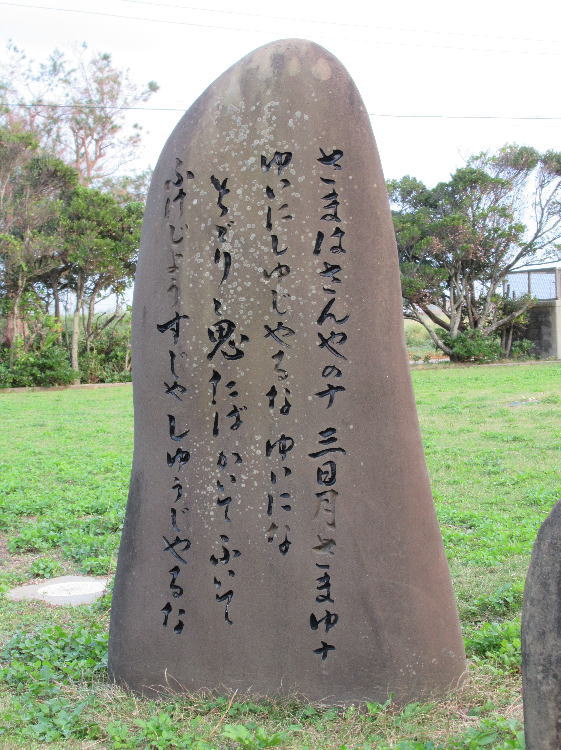 さまはさんやのナ 三日月さまゆナ
ゆいにしゆじやるな ゆいにな
ちがり 鬼 たばかいて ふいて
ふけじよう すじや しゆうじやるな